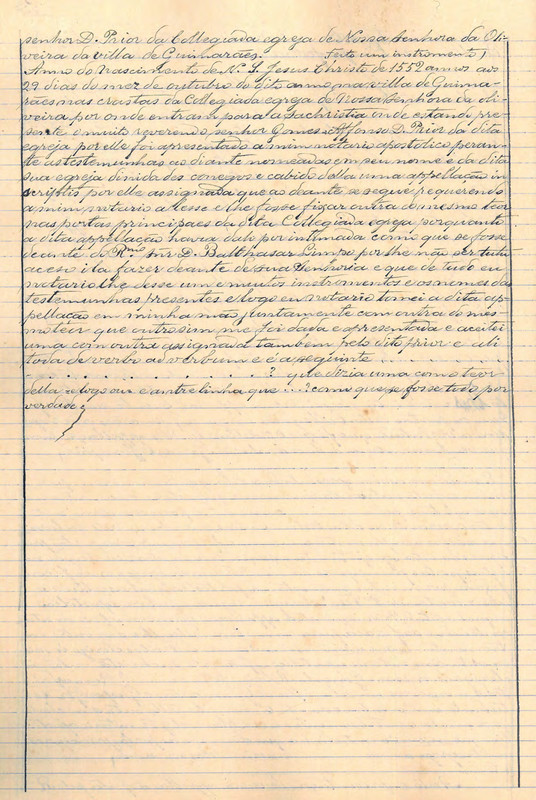 senhor D. Prior da Collegiada egreja de Nossa Senhora da Oli-
veira da villa de Guimarães. Feito um instrumento,
Anno do Nascimento de N. S. Jesus Christo de 1552 annos aos
29 dias do mez de outubro do dito anno na villa de Guima-
rães nas crastas da Collegiada egreja de Nossa Senhora da oli-
veira por onde entram para a sachristia onde estando pre-
sente o muito reverendo senhor Gomes Affonso D. Prior da dita
egreja por elle foi apresentado a mim notario apostolico peran-
te as testemunhas ao diante nomeadas em seu nome e da dita
sua egreja dinidades conegos e cabido della uma appellação in
scriptis por elle assignada que ao deante se segue requerendo
a mim notario a lesse e lhe fosse fixar outra do mesmo teor
nas portas principaes da dita Collegiada egreja porquanto
a dita appellação havia dali por intimada como que se fosse
deante do Rmo Snr D. Balthasar Limpo por lhe não ser tuto
acesso i-la fazer deante de sua Senhoria e que de tudo eu
notario lhe desse um e muitos instrumentos e os nomes das
testemunhas presentes e logo eu notario tomei a dita ap-
pellação em minha mão juntamente com outra do mes-
mo teor que outrosim me foi dada e apresentada e aceitei
uma com outra assignada tambem pelo dito prior e a li
toda de verbo ad verbum e é a seguinte . . .
. . . . . . . . . ? que dizia uma como teor
della e logo sua e antrelinha que ...? como que se fosse tudo por
verdade,